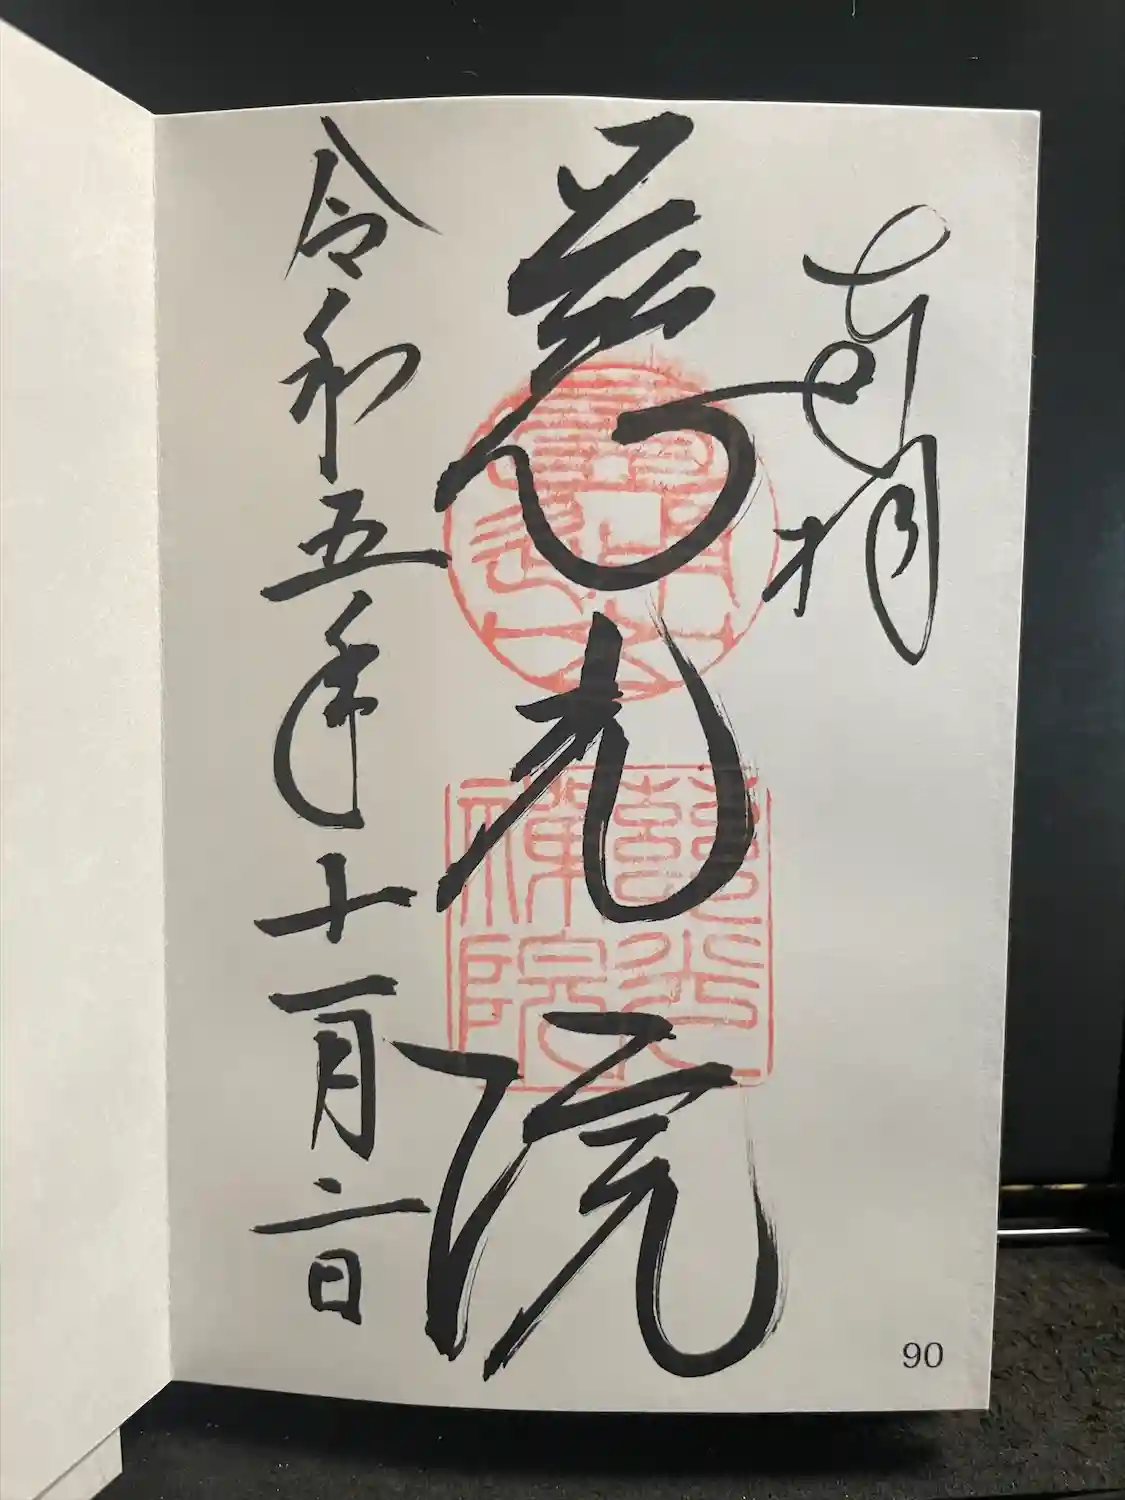 奉拝
慈光院
慈光
禪院
令和五年十一月二日
90